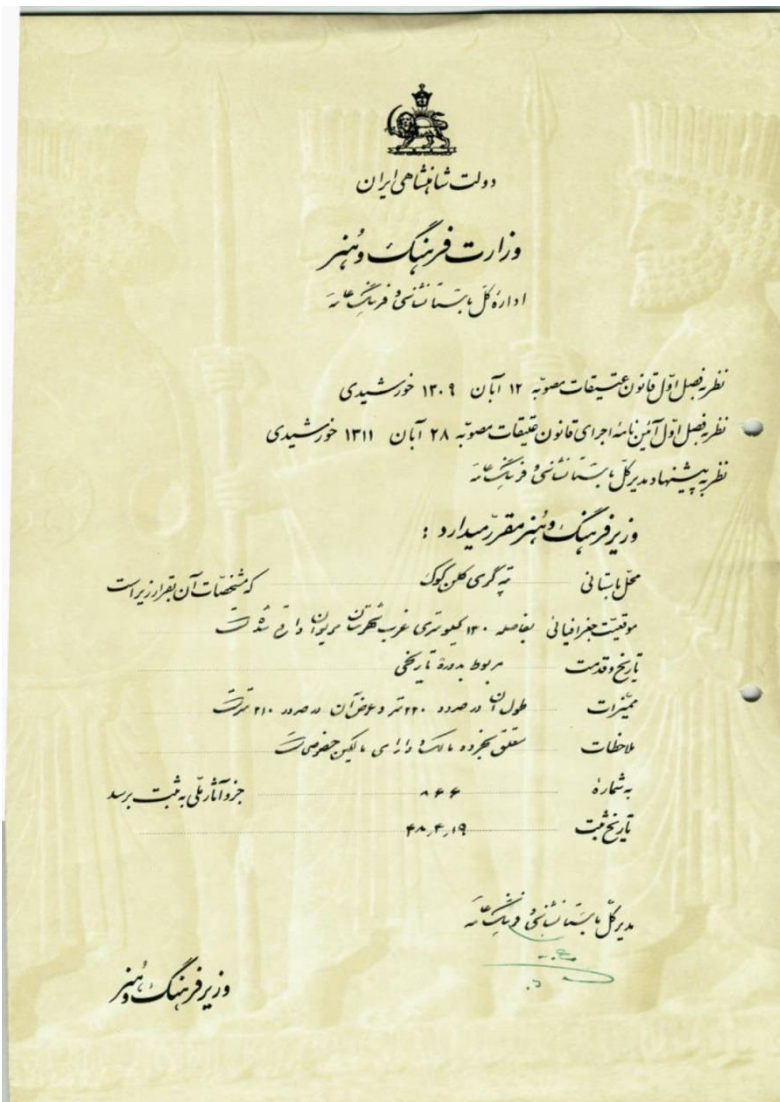 دولت شاهنشاهی ایران
وزارت فرهنگ و هنر
اداره کل باستانشناسی و فرهنگ عامه
نظر به فصل اول قانون عتیقات مصوبه ۱۲ آبان ۱۳۰۹ خورشیدی
نظر به فصل اول آئین نامه اجرای قانون عتیقات مصوبه ۲۸ آبان ۱۳۱۱ خورشیدی
نظر به پیشنهاد مدیر کل باستانشناسی و فرهنگ عامه
وزیر فرهنگ و هنر مقرر میدارد :
محل باستانی تپه گری کلن کوک که مشخصات آن بقرار زیر است
موقعیت جغرافیائی بفاصله ۱۳۰ کیلومتری غرب شهرستان مریوان واقع شده است
تاریخ و قدمت مربوط بدوره تاریخی
ممیزات طول آن در حدود ۲۲۰ متر و عرض آن در حدود ۲۱۰ متر است
ملاحظات متعلق بخرده مالک و دارای مالکین خصوصی است
به شماره ۸۶۶ جزو آثار ملی به ثبت برسد
تاریخ ثبت ۴۸,۴,۱۹
مدیر کل باستانشناسی و فرهنگ عامه
وزیر فرهنگ و هنر